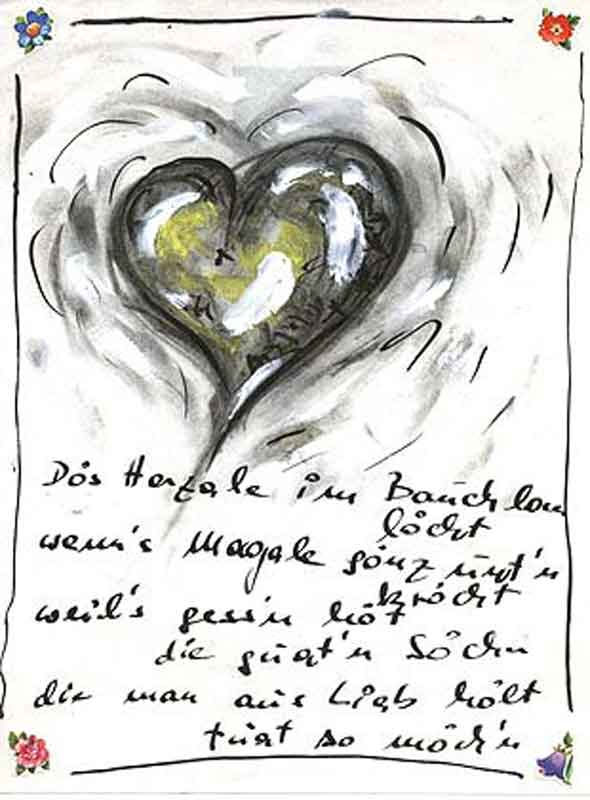 Do̊s Herzale im Bauch
lo̊cht
wenn's Magale go̊nz unt'n
kro̊cht
weil's gess'n ho̊t
die guat'n So̊chn
die man aus Liab ho̊lt
tuat so mo̊ch'n